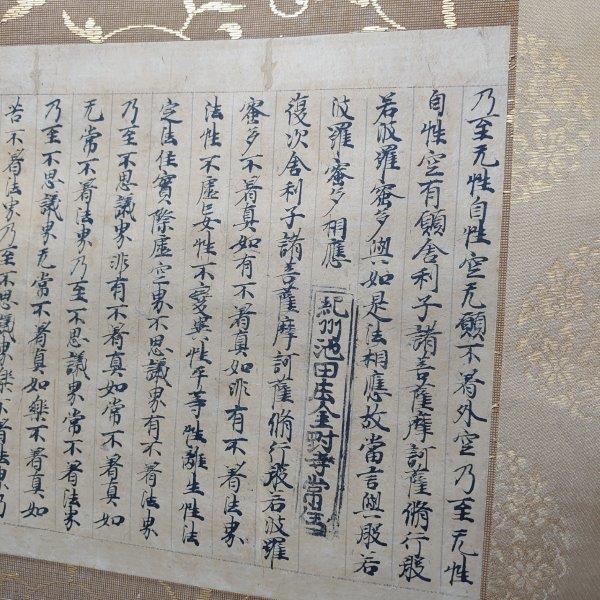 乃至无性自性空无願不著外空乃至无性
自性空有願舍利子諸菩薩摩訶薩脩行般
若波羅蜜多與如是法相應故當言與般若
波羅蜜多相應
紀州池田
復次舍利子諸菩薩摩訶薩脩行般若波羅
蜜多不著真如有不著真如非有不著法界
法性不虛妄性不變異性平等性離生性法
定法住實際虛空界不思議界有不著法界
乃至不思議界非有不著真如常不著真如
无常不著法界乃至不思議界常不著法界
乃至不思議界无常不著真如樂不著真如
苦不著法界乃至不思議界樂不著法界乃